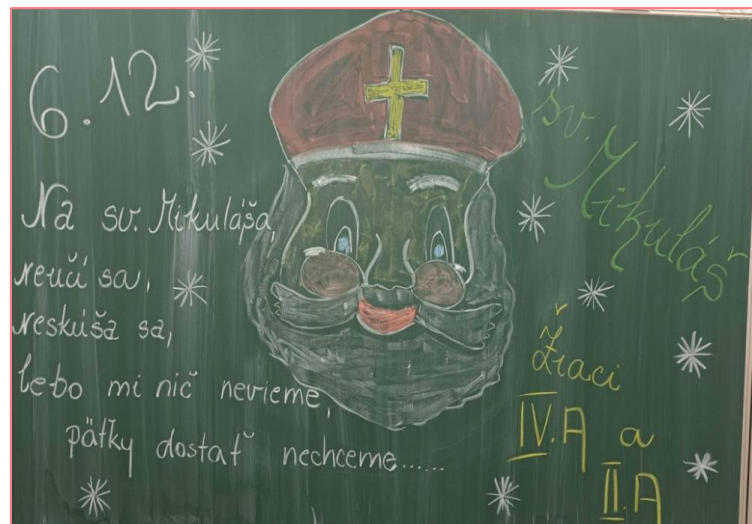 6.12.
Na sv. Mikuláša,
neučí sa,
neskúša sa,
lebo mi nič nevieme,
pätky dostať nechceme......
sv. Mikuláš
Žiaci
IV.A a
II.A